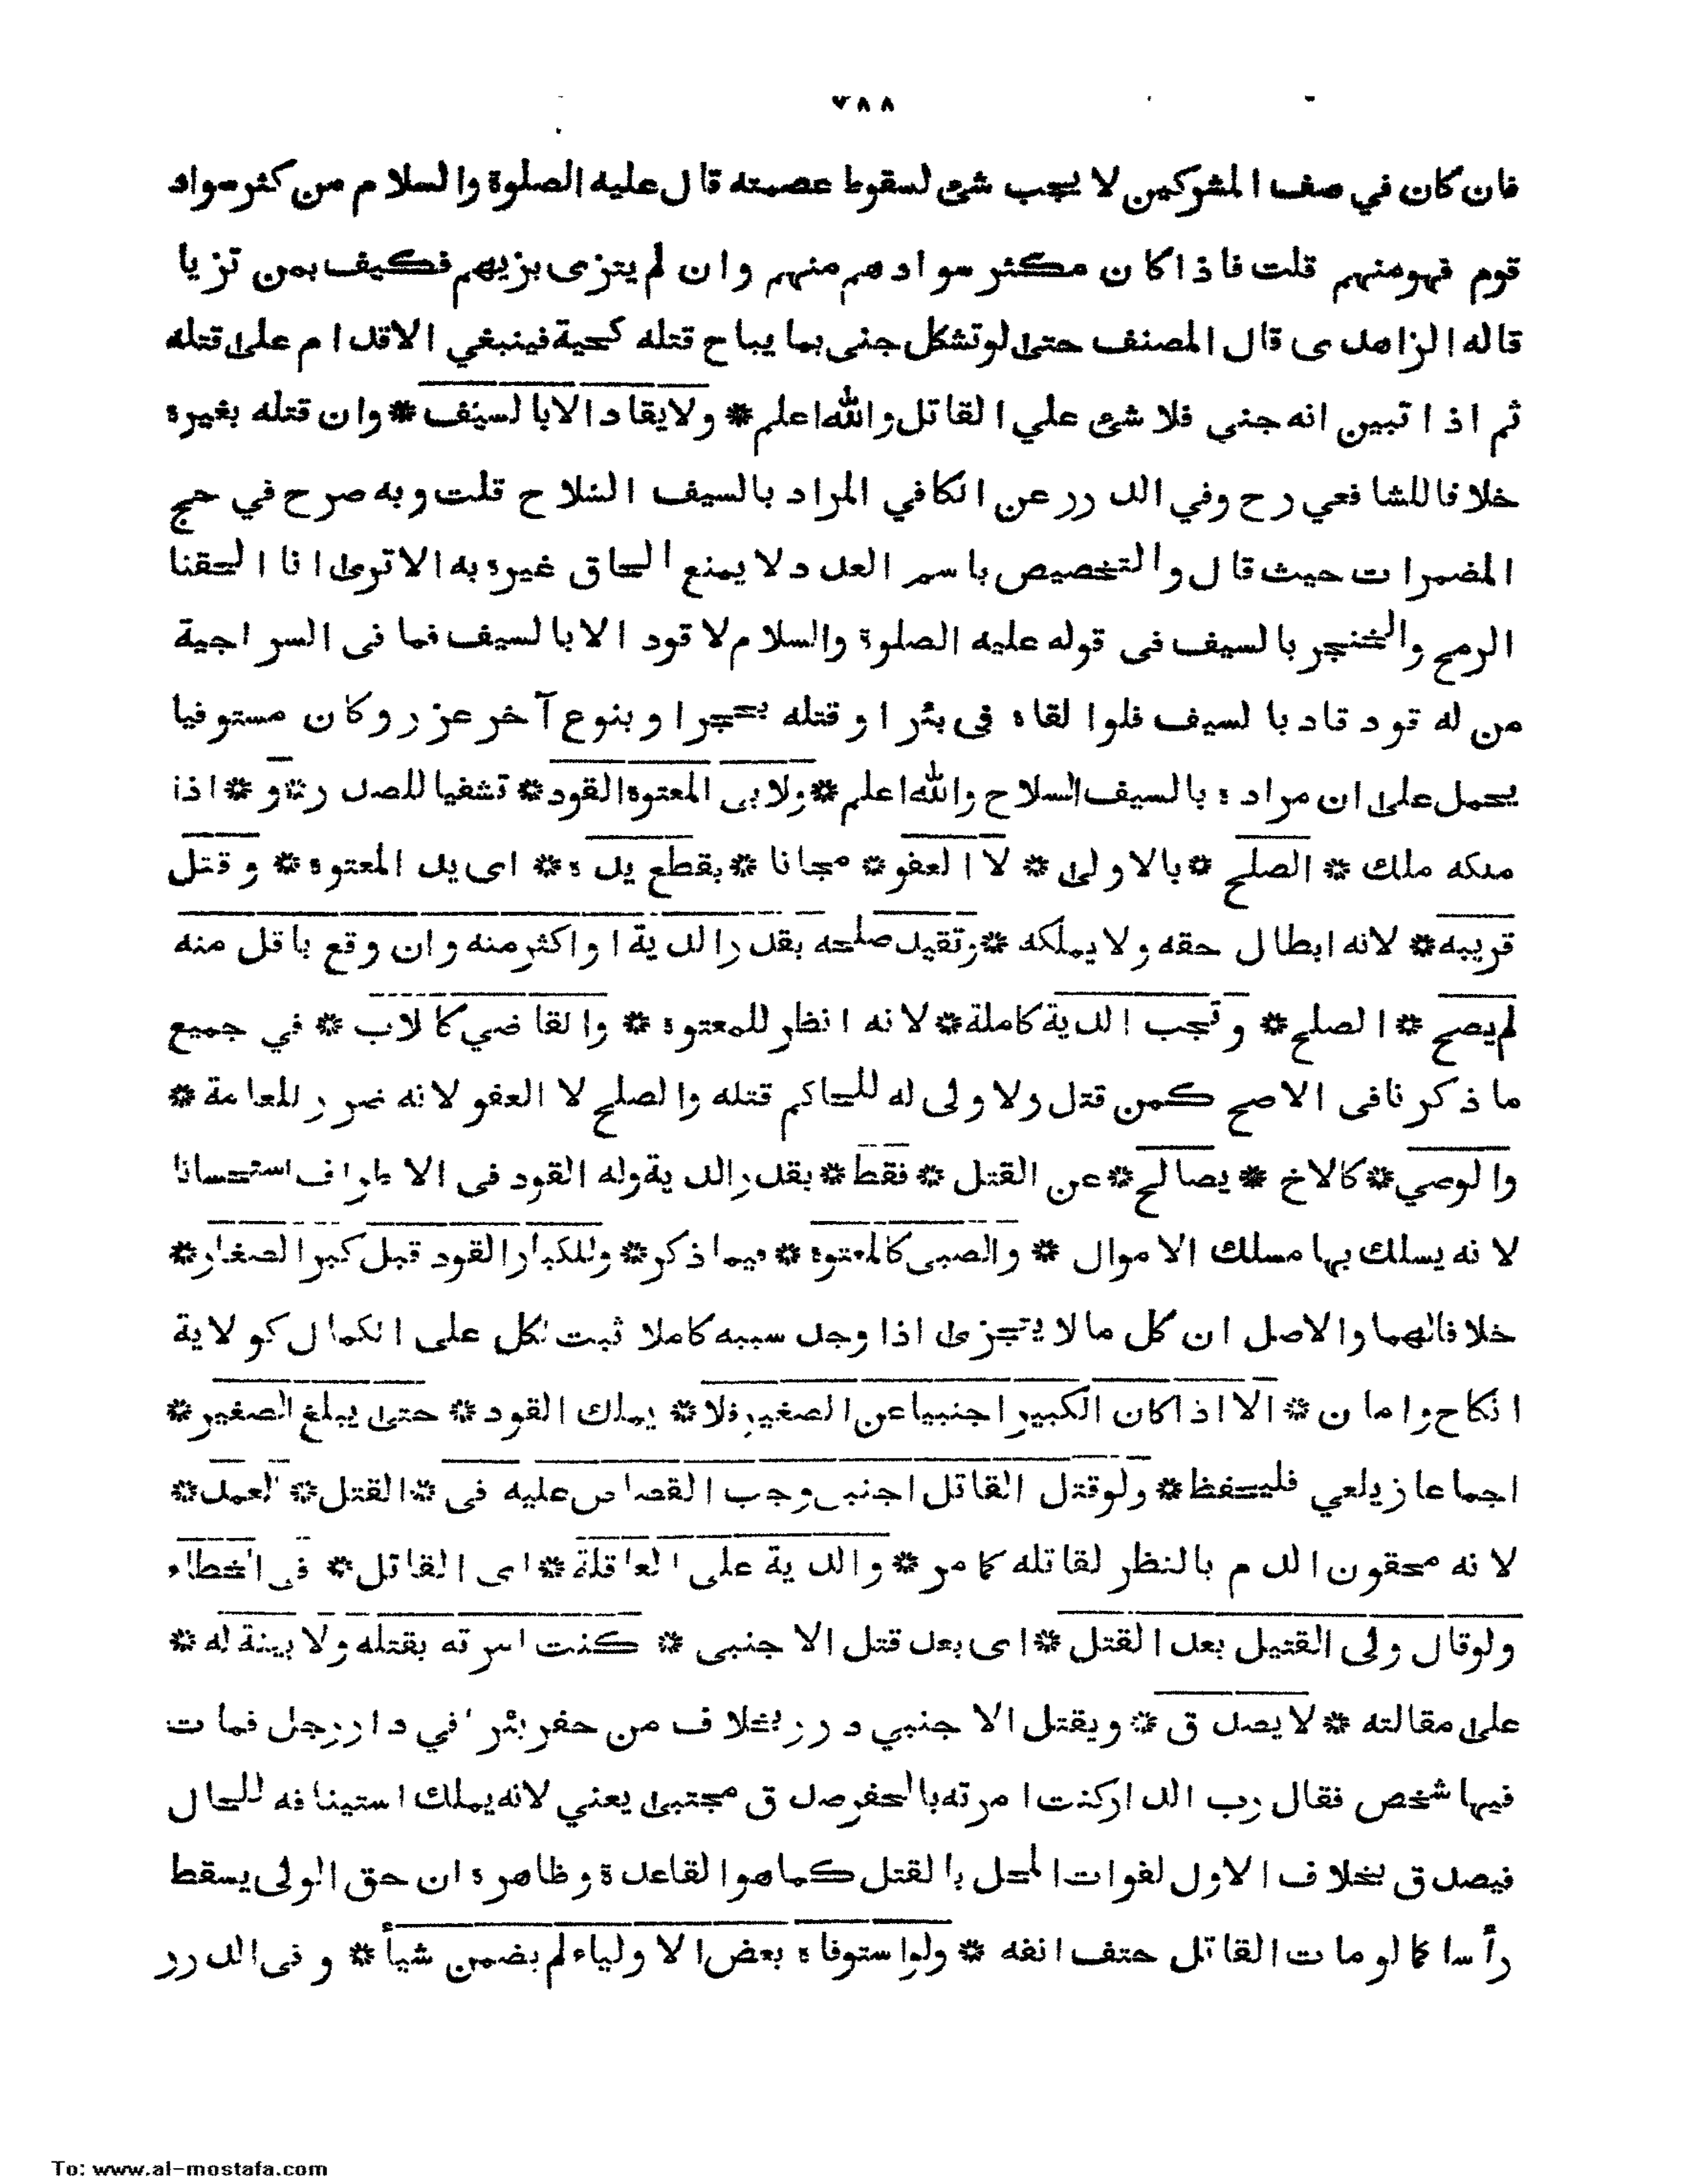 ٧٨٨
فان كان في صف المشركين لا يجب شئ لسقوط عصمته قال عليه الصلوة والسلام من كثر سواد
قوم فهو منهم قلت فاذا كان مكثر سوادهم منهم وان لم يتزى بزيهم فكيف بمن تزيا
قاله الزاهدى قال المصنف حتى لو تشكل جنى بما يباح قتله كحية فينبغي الاقدام على قتله
ثم اذا تبين انه جني فلا شئ علي القاتل والله اعلم * ولا يقاد الا بالسيف * وان قتله بغيره
خلافا للشافعي رح وفي الدرر عن الكافي المراد بالسيف السلاح قلت وبه صرح في حج
المضمرات حيث قال والتخصيص باسم العدد لا يمنع الحاق غيره به الا ترى انا الحقنا
الرمح والخنجر بالسيف فى قوله عليه الصلوة والسلام لا قود الا بالسيف فما فى السراجية
من له قود قاد بالسيف فلو القاه فى بئر او قتله بحجر او بنوع آخر عزر وكان مستوفيا
يحمل على ان مراده بالسيف السلاح والله اعلم * ولابى المعتوه القود * تشفيا للصدر * و * اذا
ملكه ملك * الصلح * بالاولى * لا العفو * مجانا * بقطع يده * اى يد المعتوه * وقتل
قريبه * لانه ابطال حقه ولا يملكه * وتقيد صلحه بقدر الدية او اكثر منه وان وقع باقل منه
لم يصح * الصلح * وتجب الدية كاملة * لانه انظر للمعتوه * والقاضي كالاب * في جميع
ما ذكرنا فى الاصح كمن قتل ولا ولى له للحاكم قتله والصلح لا العفو لانه ضرر للعامة *
والوصي * كالاخ * يصالح * عن القتل * فقط * بقدر الدية وله القود فى الاطراف استحسانا
لانه يسلك بها مسلك الاموال * والصبى كالمعتوه * فيما ذكر * وللكبار القود قبل كبر الصغار *
خلافا لهما والاصل ان كل ما لا يتجزى اذا وجد سببه كاملا ثبت لكل على الكمال كولاية
انكاح وامان * الا اذا كان الكبير اجنبيا عن الصغير فلا * يملك القود * حتى يبلغ الصغير *
اجماعا زيلعي فليحفظ * ولو قتل القاتل اجنبى وجب القصاص عليه فى * القتل * العمد *
لانه محقون الدم بالنظر لقاتله كما مر * والدية على العاقلة * اى القاتل * فى الخطاء
ولو قال ولى القتيل بعد القتل * اى بعد قتل الاجنبى * كنت امرته بقتله ولا بينة له *
على مقالته * لا يصدق * ويقتل الاجنبي درر بخلاف من حفر بئرا في دار رجل فمات
فيها شخص فقال رب الدار كنت امرته بالحفر صدق مجتبى يعني لانه يملك استينافه للحال
فيصدق بخلاف الاول لفوات المحل بالقتل كما هو القاعدة وظاهره ان حق الولى يسقط
رأسا كما لو مات القاتل حتف انفه * ولو استوفاه بعض الاولياء لم يضمن شيأ * وفى الدرر
To: www.al-mostafa.com